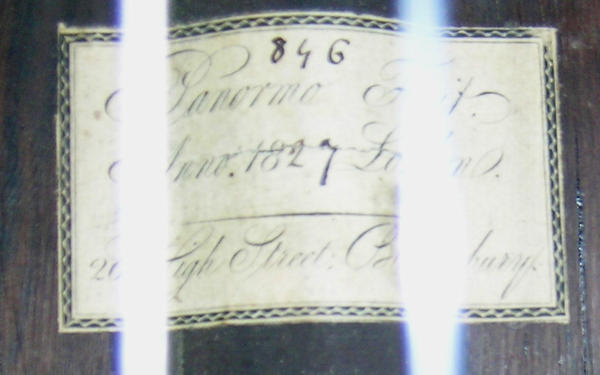 846
Panormo Fecit.
Anno. 1827 London.
High Street; Bloomsbury.